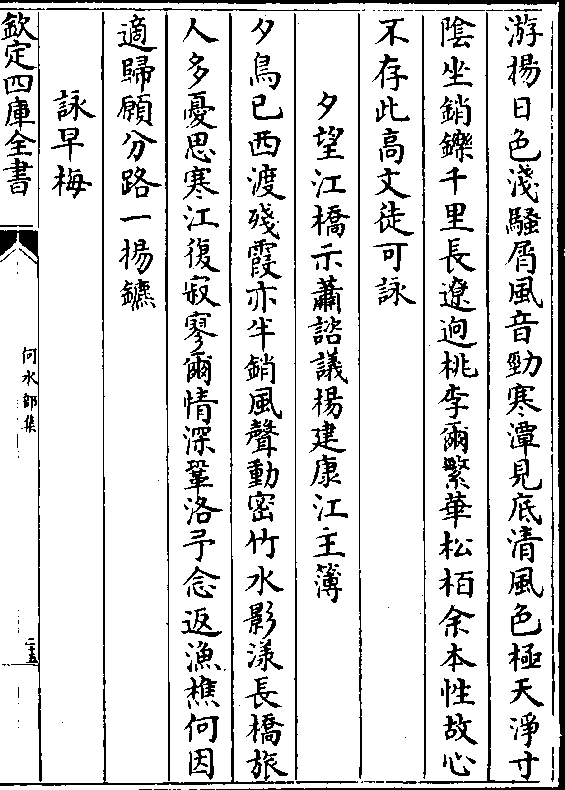 游揚日色淺騷屑風音勁寒潭見底清風色極天淨寸
陰坐銷鑠千里長遼迥桃李爾繁華松栢余本性故心
不存此高文徒可詠
夕望江橋示蕭諮議楊建康江主簿
夕鳥已西渡殘霞亦半銷風聲動密竹水影漾長橋旅
人多憂思寒江復寂寥爾情深鞏洛予念返漁樵何因
適歸願分路一揚鑣
詠早梅
欽定四庫全書
何水部集
二十五